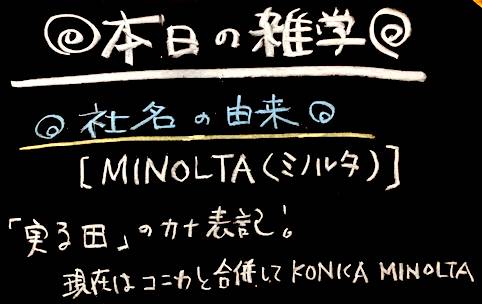 本日の雑学
社名の由来
[MINOLTA(ミノルタ)]
「実る田」のカナ表記!
現在はコニカと合併して KONICA MINOLTA